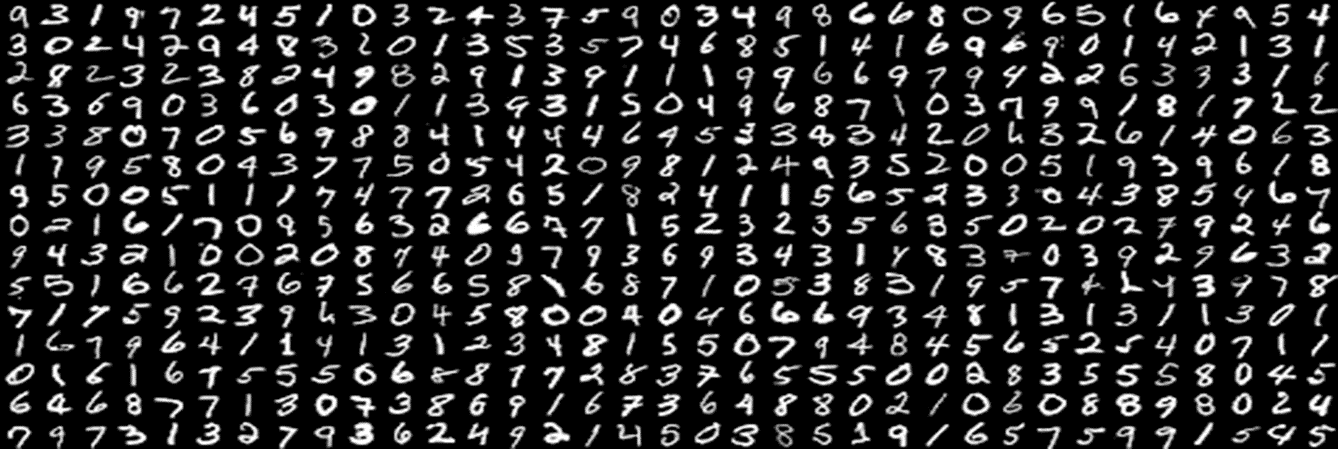 9 3 1 9 7 2 4 5 1 0 3 2 4 3 7 5 9 0 3 4 9 8 6 6 8 0 9 6 5 1 6 4 9 5 4
3 0 2 4 2 9 4 8 3 2 0 1 3 5 3 5 7 4 6 8 5 1 4 1 6 9 6 9 0 1 4 2 1 3 1
2 8 2 3 2 3 8 2 4 9 8 2 9 1 3 9 1 1 1 9 9 6 6 9 7 9 4 2 2 6 3 3 3 1 6
6 3 6 9 0 3 6 0 3 0 1 1 3 9 3 1 5 0 4 9 6 8 7 1 0 3 7 9 9 1 8 1 7 2 2
3 3 8 0 7 0 5 6 9 8 8 4 1 4 4 4 6 4 5 3 3 8 3 4 2 0 6 3 2 6 1 4 0 6 3
1 7 9 5 8 0 4 3 7 7 5 0 5 4 2 0 9 8 1 2 4 9 3 5 2 0 0 5 1 9 3 9 6 1 8
9 5 0 0 5 1 1 1 7 4 7 7 2 6 5 1 8 2 4 1 1 5 6 5 2 3 3 0 4 3 8 5 4 6 7
0 2 1 6 1 7 0 9 5 6 3 2 6 6 7 7 1 5 2 3 2 3 5 6 3 5 0 2 0 2 7 9 2 4 6
9 4 3 2 1 0 0 2 0 8 7 4 0 9 7 9 3 6 9 3 4 3 1 4 8 3 7 0 3 9 2 9 6 3 2
5 5 1 6 6 2 7 6 7 5 6 6 5 8 1 6 8 7 1 0 5 3 8 3 1 9 5 7 4 1 4 3 9 7 8
7 1 7 5 9 2 3 9 6 3 0 4 5 8 0 0 4 0 4 6 6 6 9 3 4 8 1 3 1 3 1 1 3 0 1
1 6 7 9 6 4 1 1 4 1 3 1 2 3 4 8 1 5 5 0 7 9 4 8 4 5 6 5 2 5 4 0 7 1 1
0 1 6 1 6 7 5 5 5 0 6 8 8 7 7 2 8 3 7 6 5 5 5 0 0 2 8 3 5 5 5 8 0 4 5
6 4 6 8 7 7 1 3 0 7 3 8 6 9 1 6 7 3 6 4 8 8 0 2 1 0 6 0 8 8 9 8 0 2 4
7 9 7 3 1 3 2 7 9 3 6 2 4 9 2 1 4 5 0 3 8 5 1 9 1 6 5 7 5 9 9 1 5 4 5